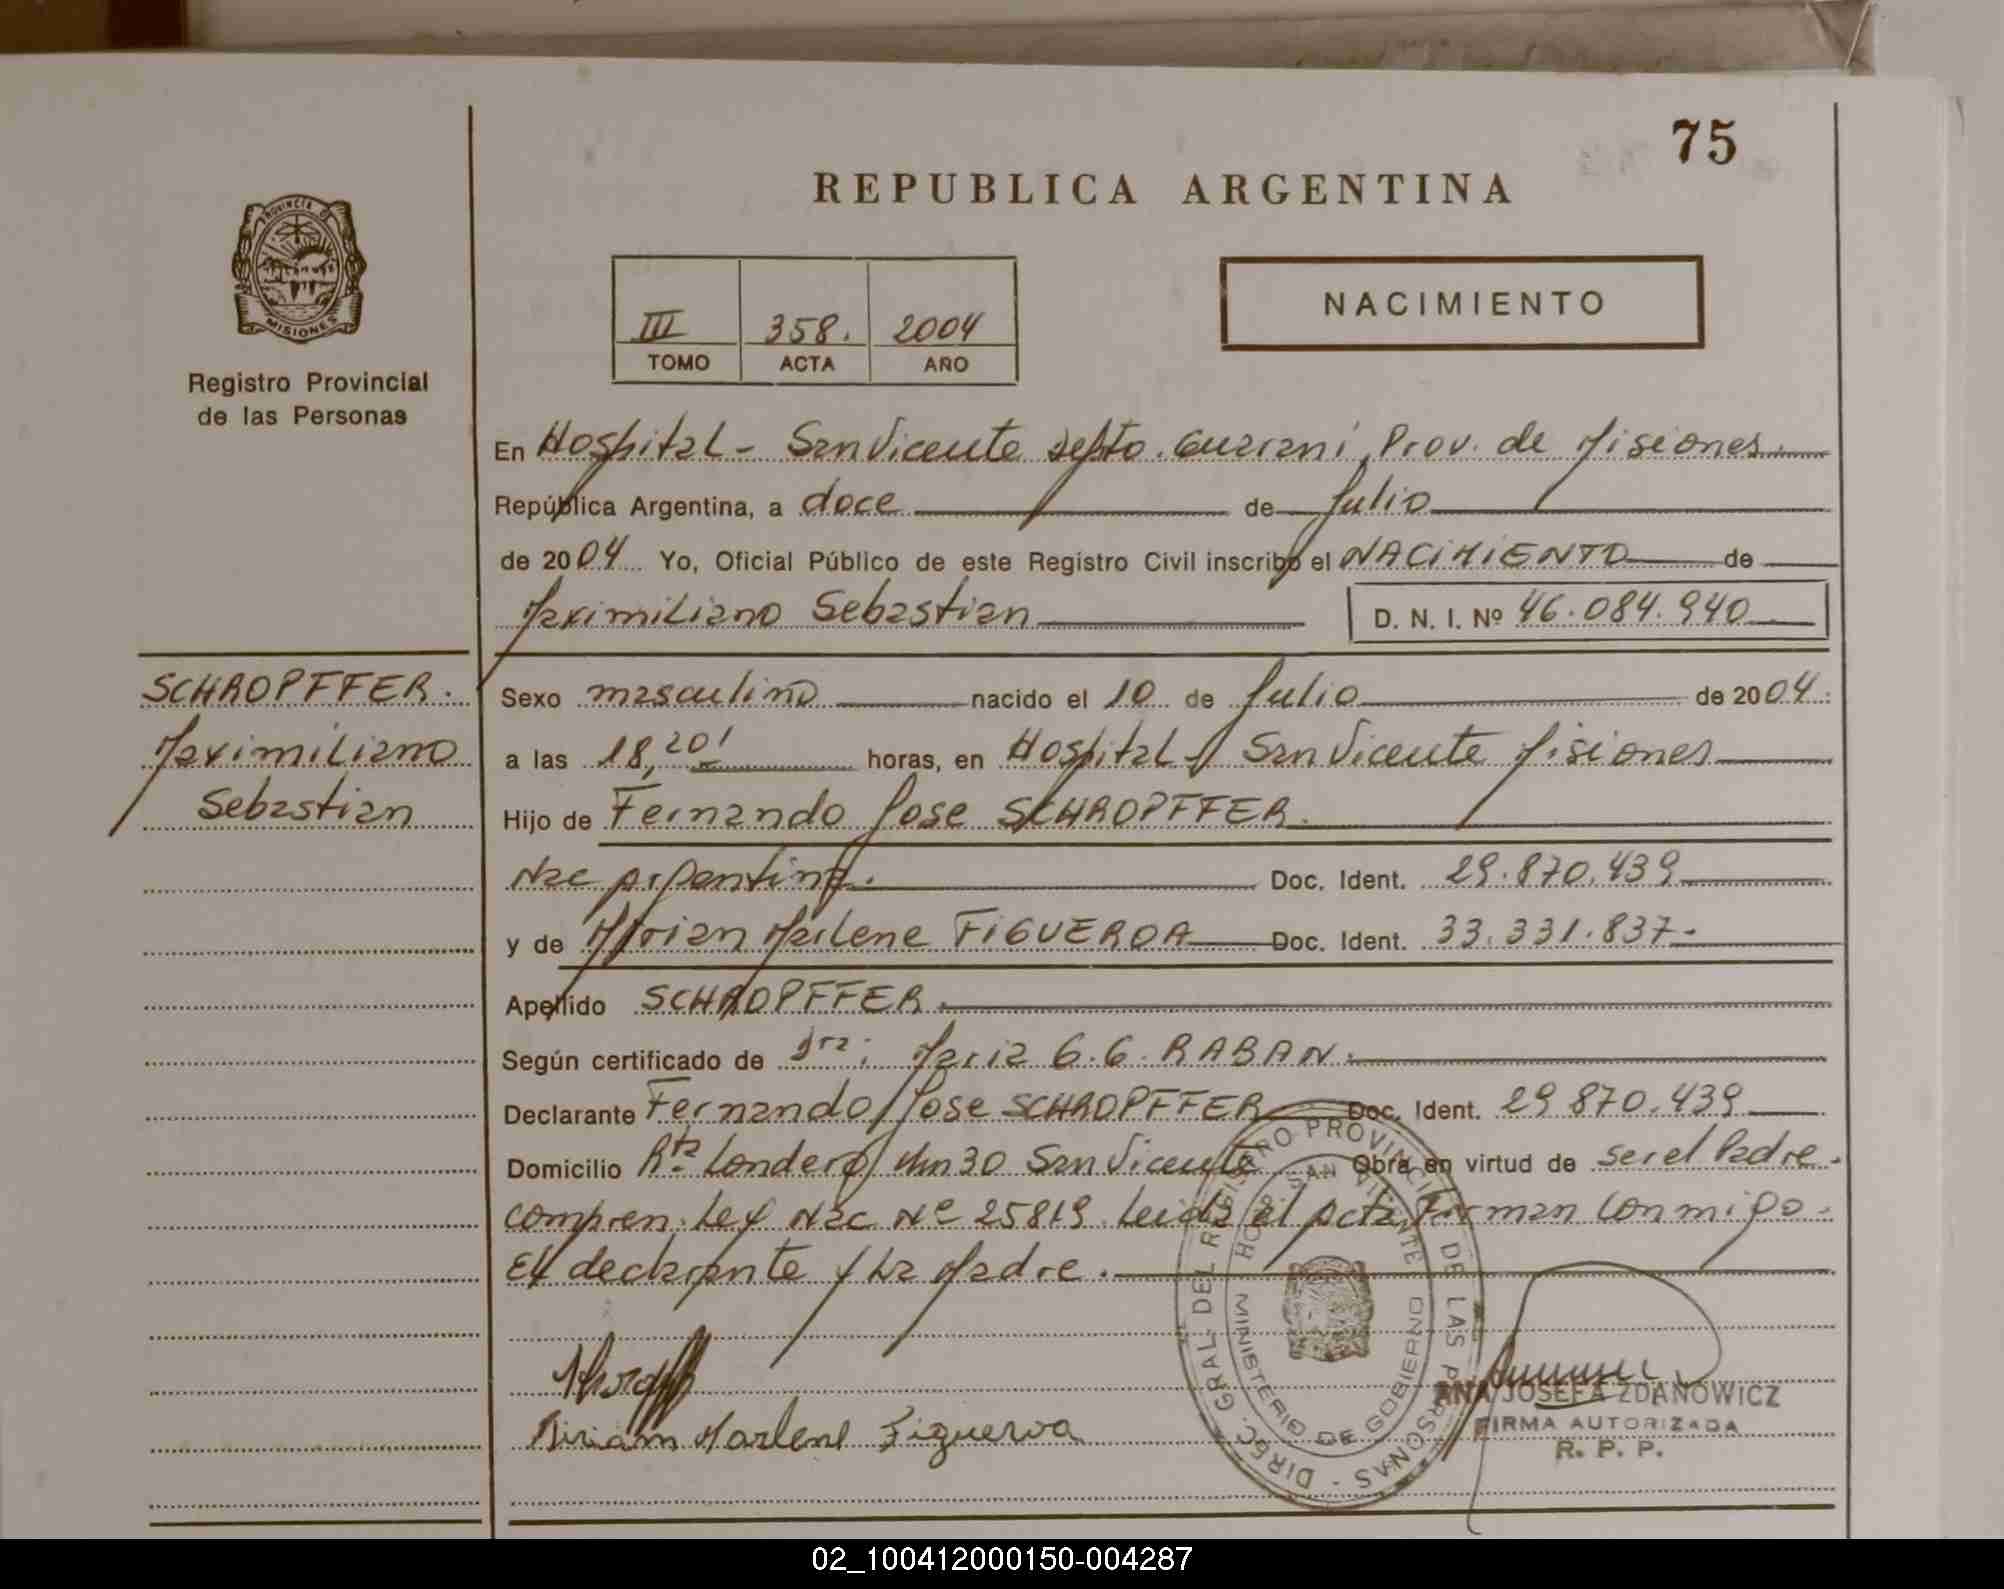 75
REPUBLICA ARGENTINA
PROVINCIA D
MISIONES
Registro Provincial
de las Personas
III 358. 2004
TOMO ACTA AÑO
NACIMIENTO
En Hospital - San Vicente Depto. Guarani, Prov. de Misiones
República Argentina, a doce de Julio
de 2004 Yo, Oficial Público de este Registro Civil inscribo el NACIMIENTO de
Maximiliano Sebastian D. N. I. Nº 46.084.940
SCHROPFFER.
Maximiliano
Sebastian
Sexo masculino nacido el 10 de Julio de 2004.
a las 18,20' horas, en Hospital - San Vicente Misiones
Hijo de Fernando Jose SCHROPFFER.
Nac Argentina. Doc. Ident. 29.870.439
y de Mirian Marlene FIGUEROA Doc. Ident. 33.331.837-
Apellido SCHROPFFER.
Según certificado de Dra: Maria G.G. RABAN.
Declarante Fernando Jose SCHROPFFER Doc. Ident. 29 870.439
Domicilio Rta Londero Km 30 San Vicente Obra en virtud de ser el Padre.
compren. Ley Nac Nº 25819. Leida el Acta, Firman Conmigo.
El declarante y La Madre.
Miriam Marlene Figueroa
DIREC. GRAL. DEL REGISTRO PROVINCIAL DE LAS PERSONAS -
HOSP. SAN VICENTE
MINISTERIO DE GOBIERNO
ANA JOSEFA ZDANOWICZ
FIRMA AUTORIZADA
R. P. P.
02_100412000150-004287